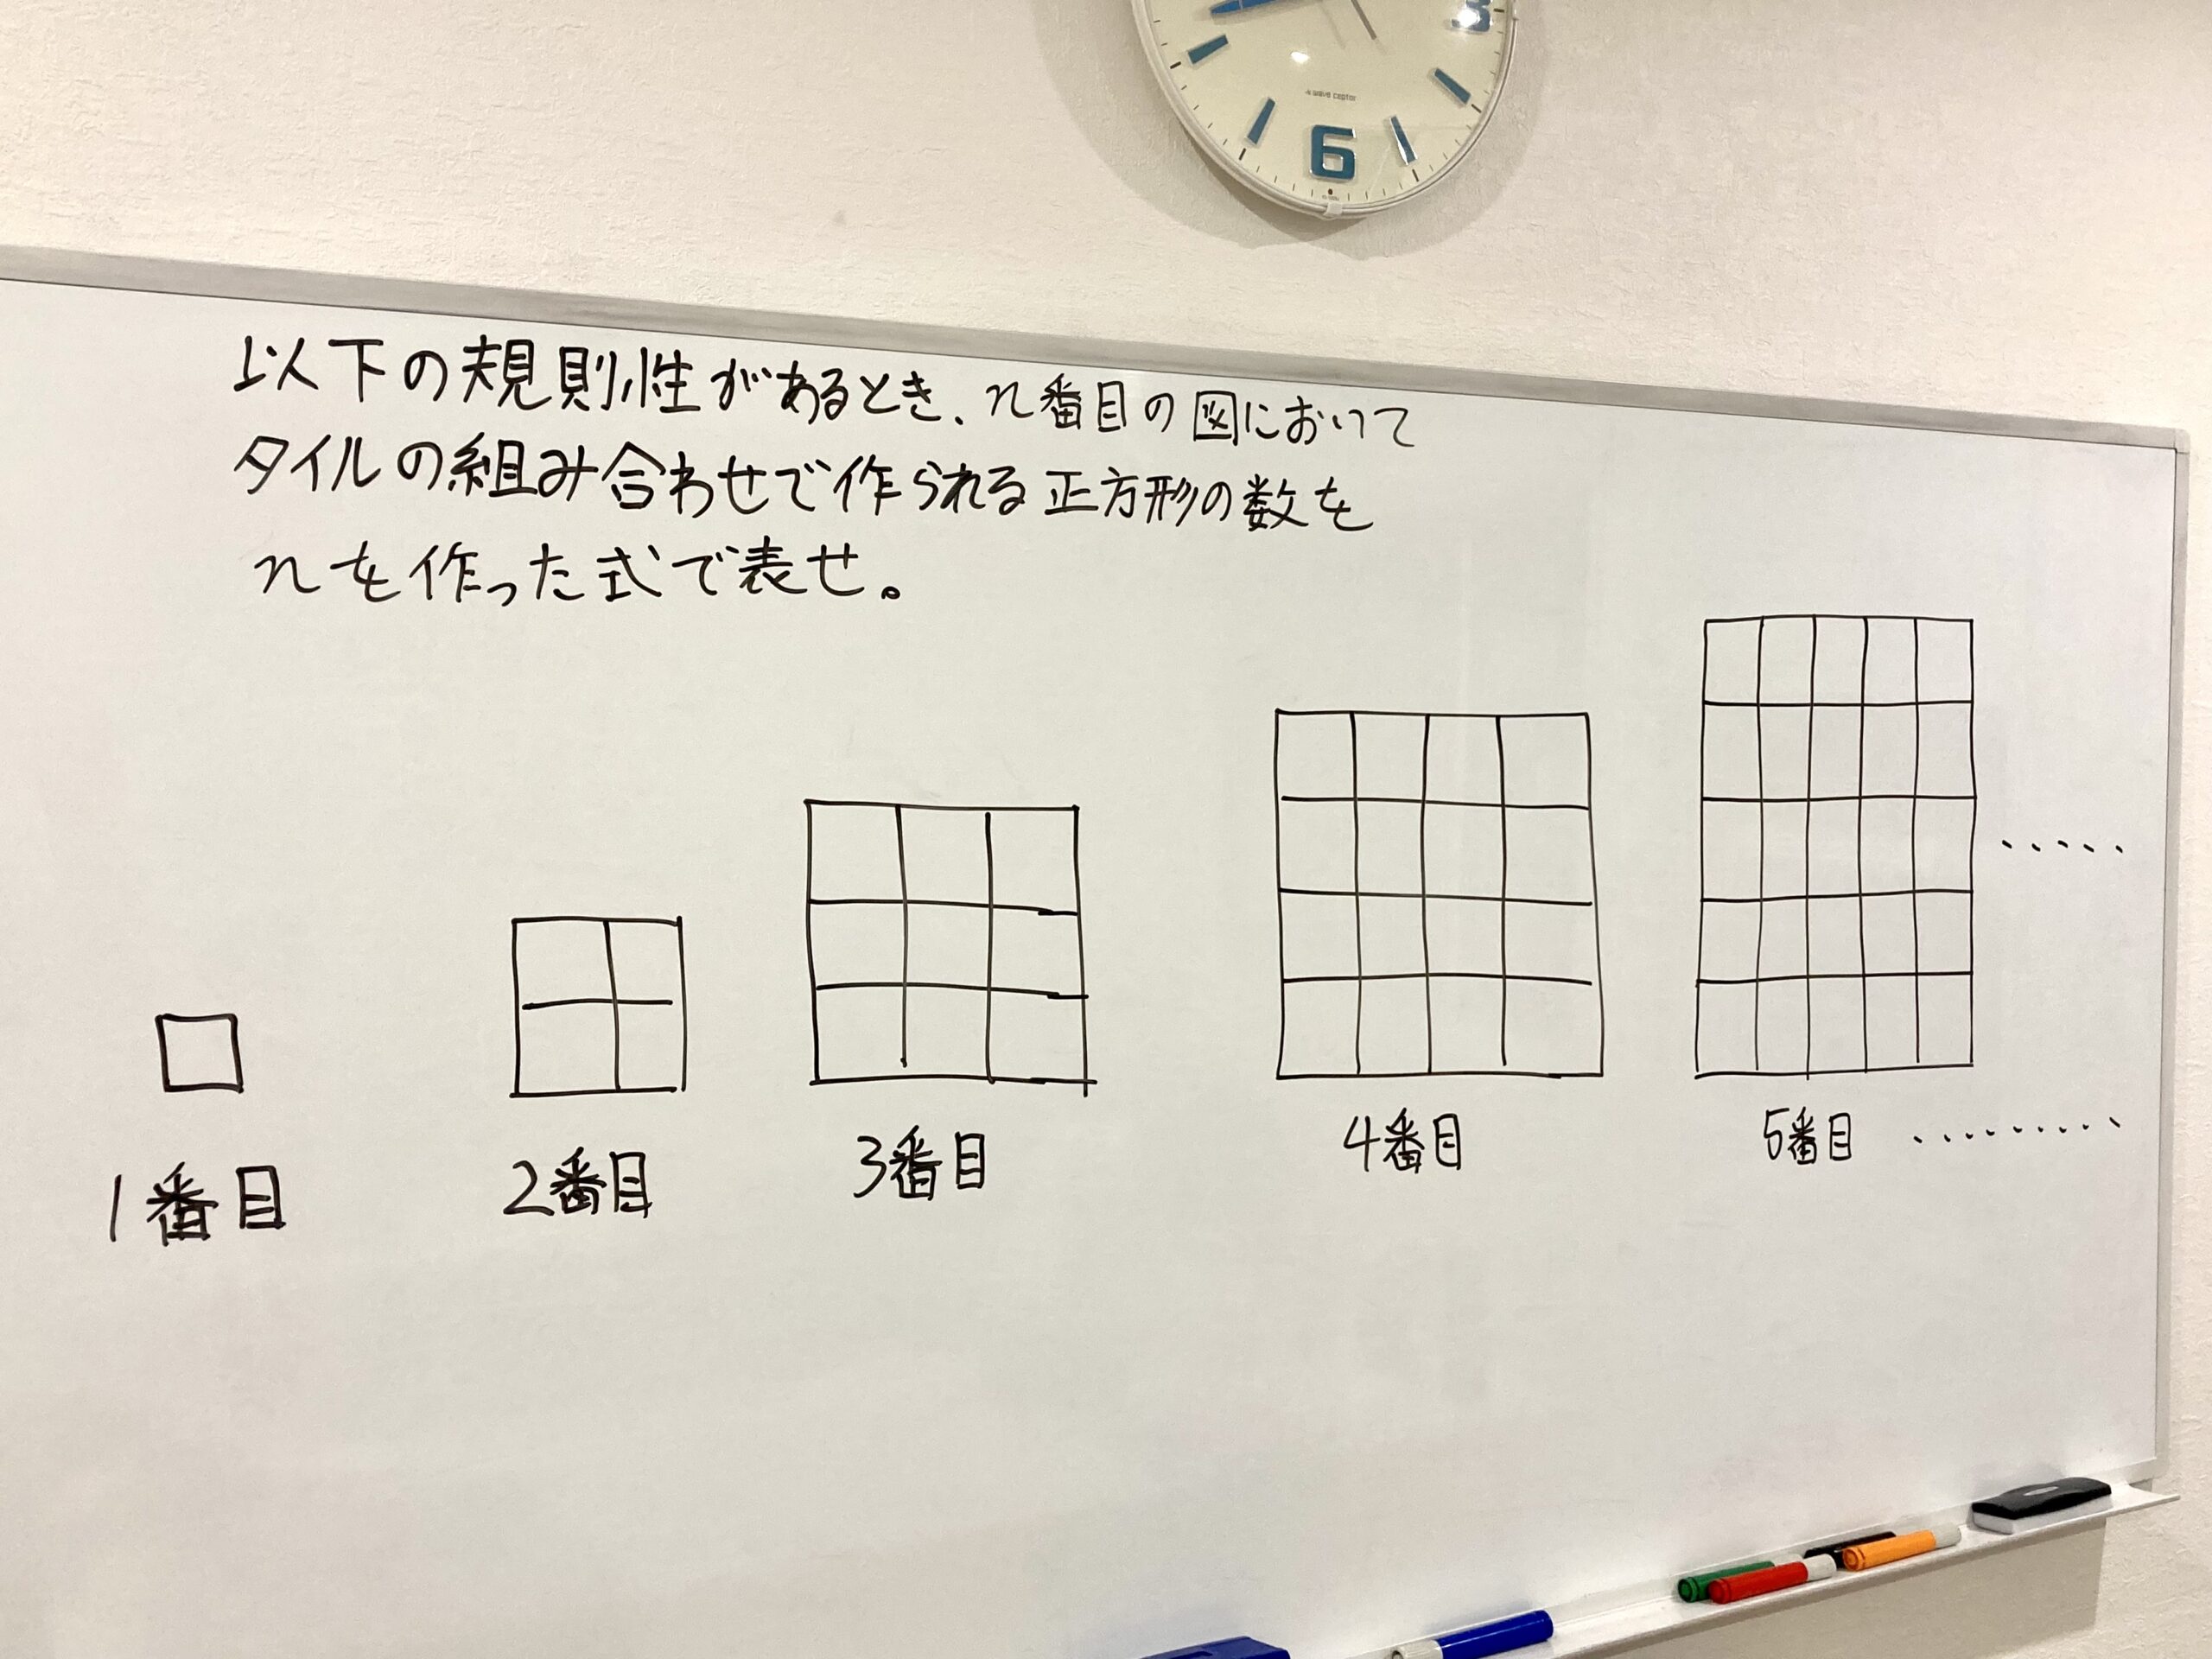 3
wave ceptor
6
以下の規則性があるとき、n番目の図において
タイルの組み合わせで作られる正方形の数を
nを作った式で表せ。
1番目 2番目 3番目 4番目 5番目 ・・・・・・・・